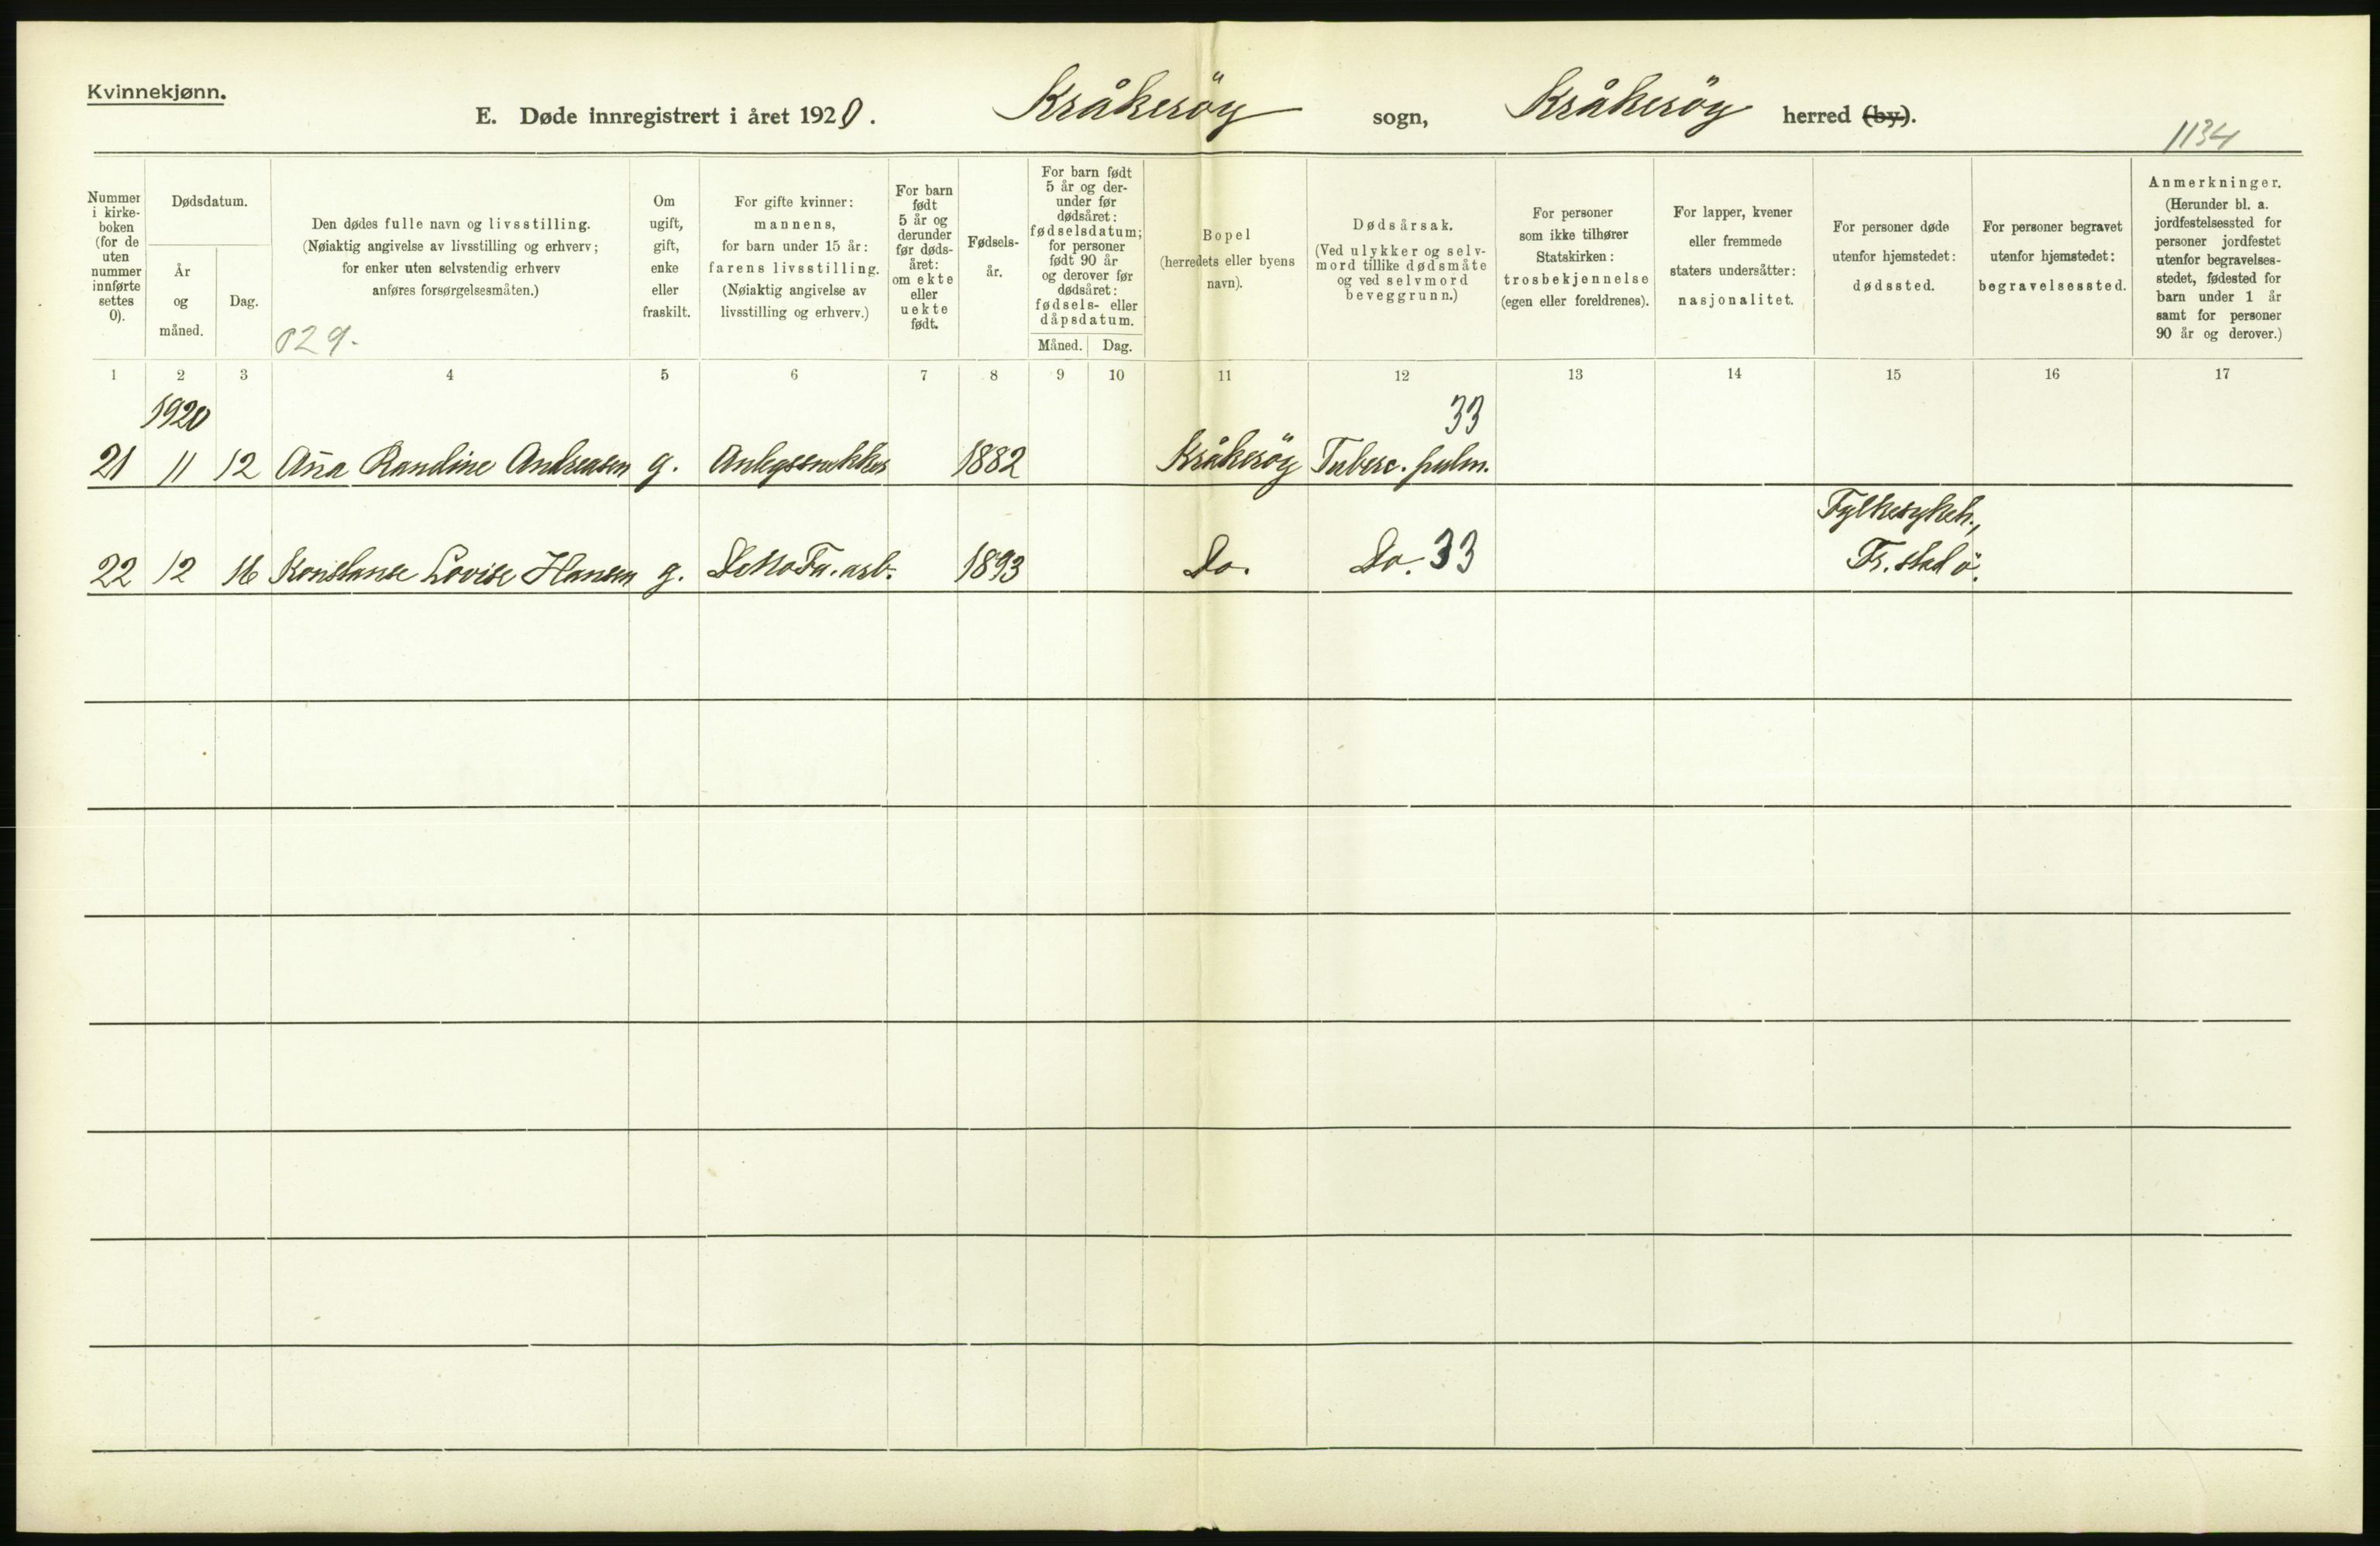 Kvinnekjønn.
E. Døde innregistrert i året 1920. Kråkeröy sogn, Kråkeröy herred (by).
1134
Nummer
i kirke-
boken
(for de
uten
nummer
innførte
settes
0).
Dødsdatum.
År
og
måned.
Dag.
Den dødes fulle navn og livsstilling.
(Nøiaktig angivelse av livsstilling og erhverv;
for enker uten selvstendig erhverv
anføres forsørgelsesmåten.)
029.
Om
ugift,
gift,
enke
eller
fraskilt.
For gifte kvinner:
mannens,
for barn under 15 år:
farens livsstilling.
(Nøiaktig angivelse av
livsstilling og erhverv.)
For barn
født
5 år og
derunder
før døds-
året:
om ekte
eller
uekte
født.
Fødsels-
år.
For barn født
5 år og der-
under før
dødsåret:
fødselsdatum;
for personer
født 90 år
og derover før
dødsåret:
fødsels- eller
dåpsdatum.
Måned. Dag.
Bopel
(herredets eller byens
navn).
Dødsårsak.
(Ved ulykker og selv-
mord tillike dødsmåte
og ved selvmord
beveggrunn.)
For personer
som ikke tilhører
Statskirken:
trosbekjennelse
(egen eller foreldrenes).
For lapper, kvener
eller fremmede
staters undersåtter:
nasjonalitet.
For personer døde
utenfor hjemstedet:
dødssted.
For personer begravet
utenfor hjemstedet:
begravelsessted.
Anmerkninger.
(Herunder bl. a.
jordfestelsessted for
personer jordfestet
utenfor begravelses-
stedet, fødested for
barn under 1 år
samt for personer
90 år og derover.)
1 2 3 4 5 6 7 8 9 10 11 12 13 14 15 16 17
1920 33
21 11 12 Aña Randine Andreasen g. Anlegssnekker 1882 Kråkeröy Tuberc. pulm.
Fylkesykeh.,
22 12 16 Konstanse Lovise Hansen g. DeNoFa. arb. 1893 Do. Do. 33 Fr.stad ö.